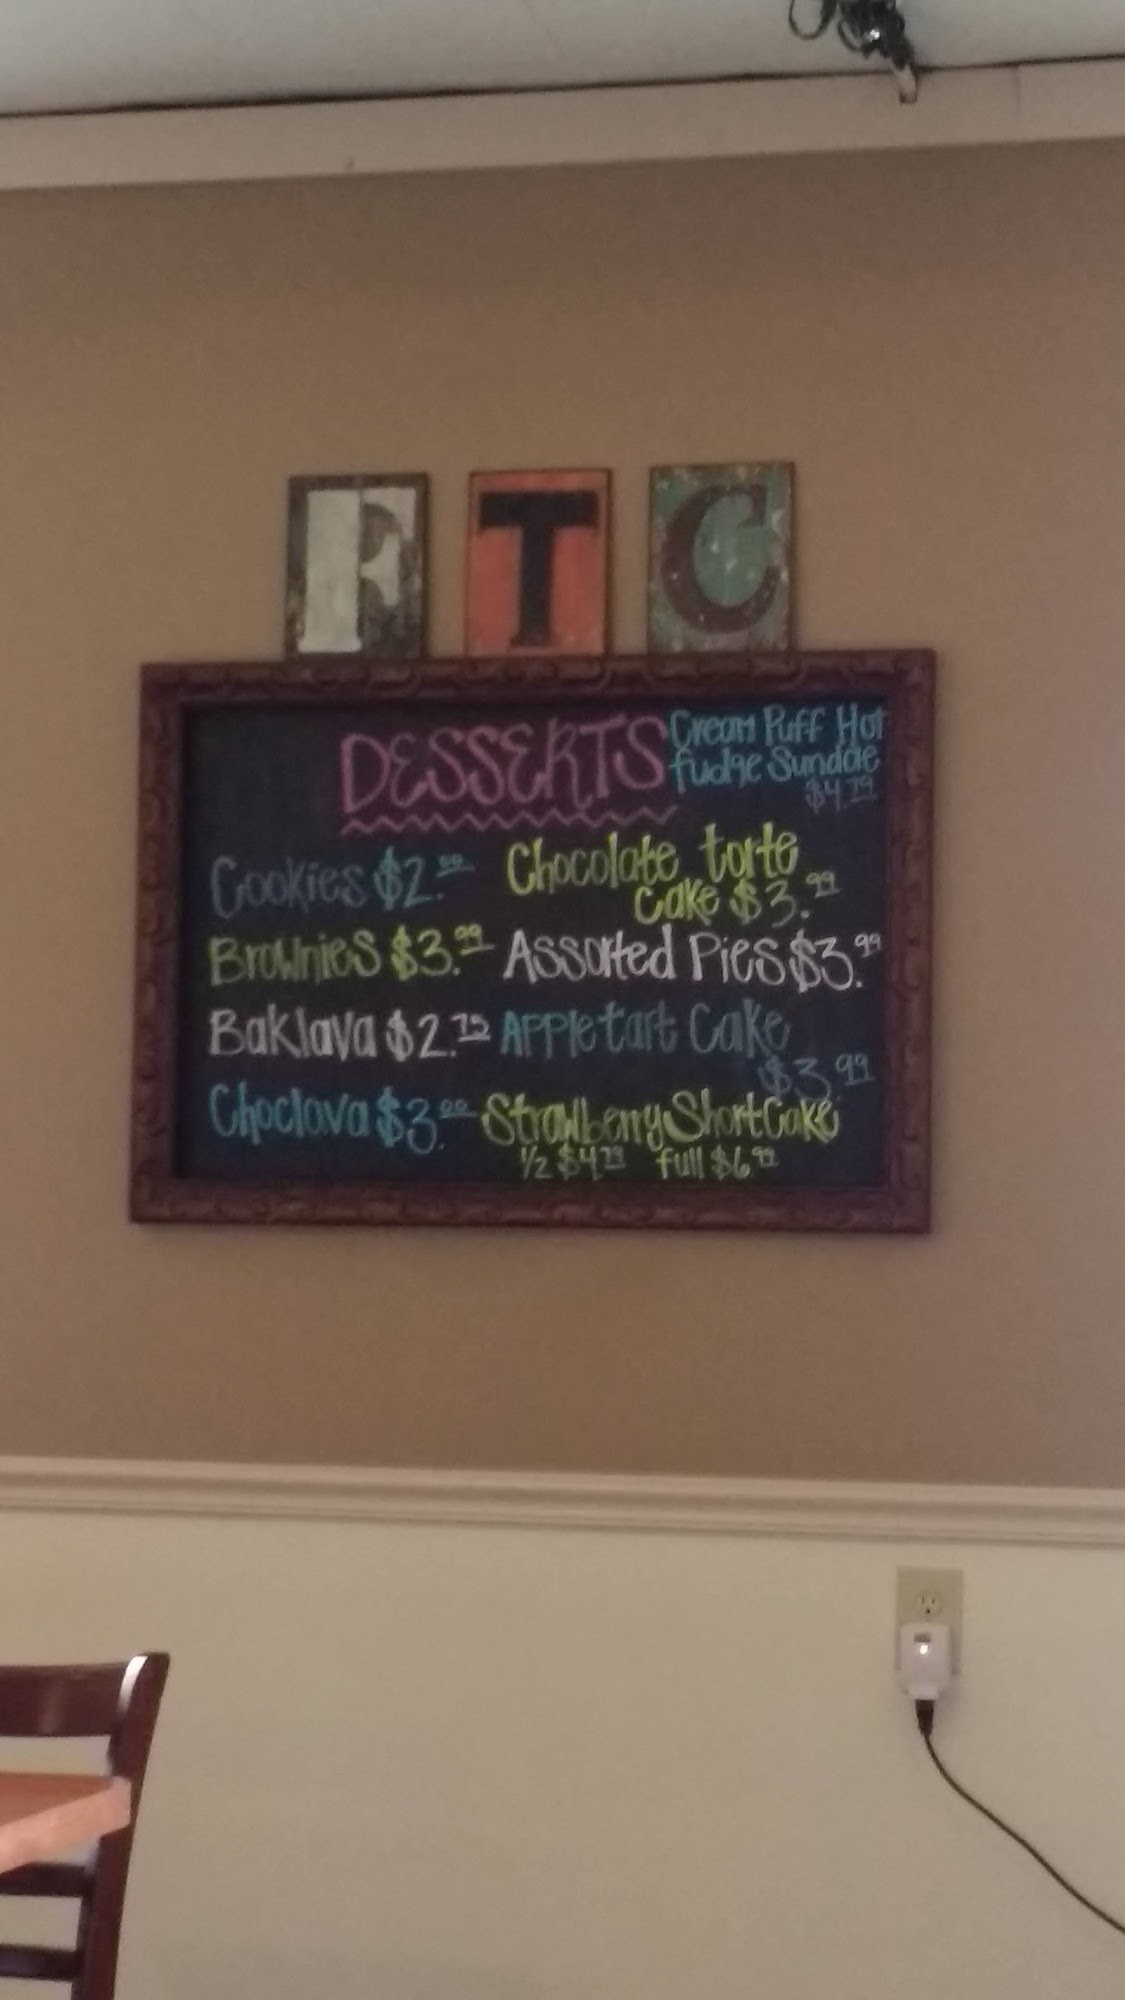 F T C
DESSERTS
Cream Puff Hot
fudge Sundae
$4.79
Cookies $2.00
Brownies $3.99
Baklava $2.75
Choclava $3.00
Chocolate torte
Cake $3.99
Assorted Pies $3.99
Apple tart Cake
$3.99
Strawberry ShortCake
1/2 $4.79 full $6.99